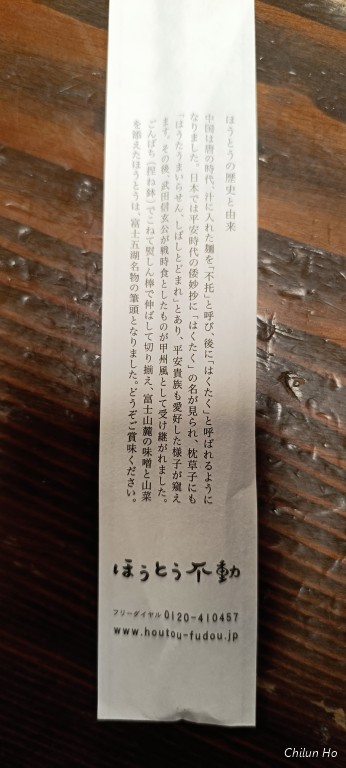 ほうとうの歴史と由来
中国は唐の時代。汁に入れた麺を「不托」と呼び、後に「はくたく」と呼ばれるように
なりました。日本では平安時代の倭妙抄に「はくたく」の名が見られ、枕草子にも
「ほうたうまいらせん、しばしとどまれ」とあり、平安貴族も愛好した様子が窺え
ます。その後、武田信玄公が戦時食としたものが甲州風として受け継がれました。
ごんばち(捏ね鉢)でこねて熨しん棒で伸ばして切り揃え、富士山麓の味噌と山菜
を添えたほうとうは、富士五湖名物の筆頭となりました。どうぞご賞味ください。
ほうとう不動
フリーダイヤル 0120-410457
www.houtou-fudou.jp
Chilun Ho